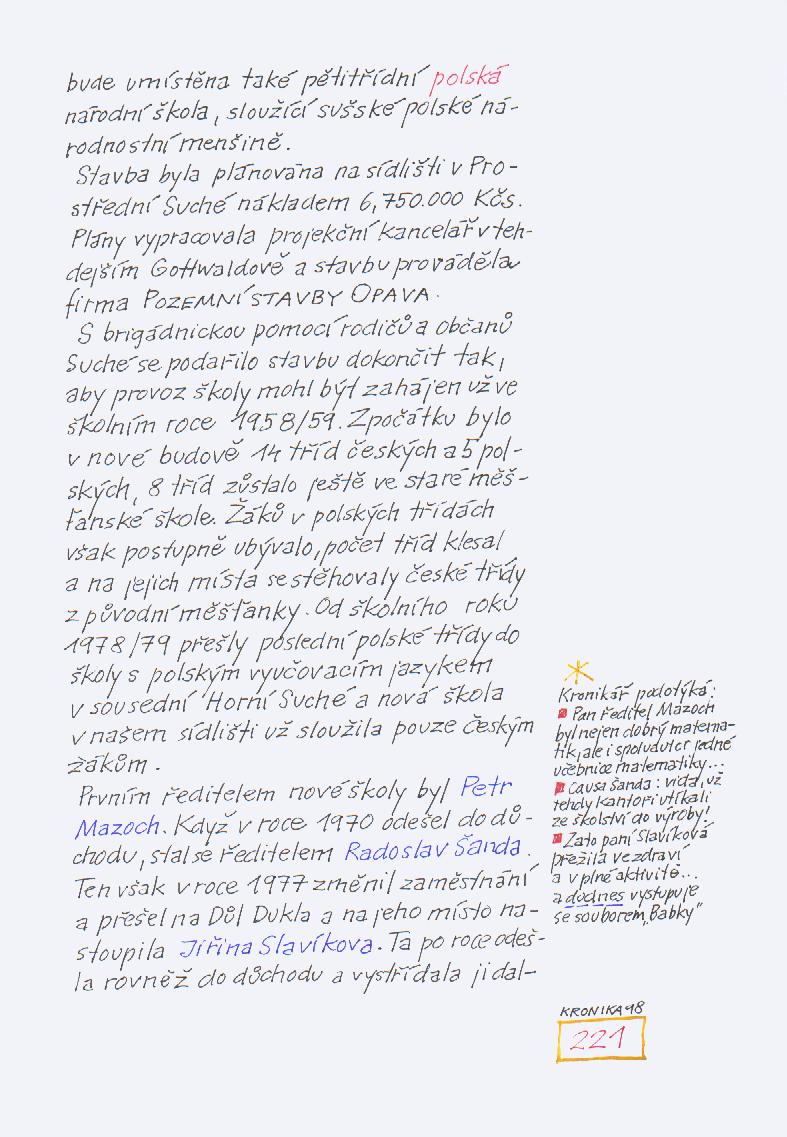 bude umístěna také pětitřídní polská
národní škola, sloužící sušské polské ná-
rodnostní menšině.
Stavba byla plánována na sídlišti v Pro-
střední Suché nákladem 6,750.000 Kčs.
Plány vypracovala projekční kancelář v teh-
dejším Gottwaldově a stavbu prováděla
firma POZEMNÍ STAVBY OPAVA.
S brigádnickou pomocí rodičů a občanů
Suché se podařilo stavbu dokončit tak,
aby provoz školy mohl být zahájen už ve
školním roce 1958/59. Zpočátku bylo
v nové budově 14 tříd českých a 5 pol-
ských, 8 tříd zůstalo ještě ve staré měš-
ťanské škole. Žáků v polských třídách
však postupně ubývalo, počet tříd klesal
a na jejich místa se stěhovaly české třídy
z původní měšťanky. Od školního roku
1978/79 přešly poslední polské třídy do
školy s polským vyučovacím jazykem
v sousední Horní Suché a nová škola
v našem sídlišti už sloužila pouze českým
žákům.
Prvním ředitelem nové školy byl Petr
Mazoch. Když v roce 1970 odešel do dů-
chodu, stal se ředitelem Radoslav Šanda.
Ten však v roce 1977 změnil zaměstnání
a přešel na Důl Dukla a na jeho místo na-
stoupila Jiřina Slavíkova. Ta po roce odeš-
la rovněž do důchodu a vystřídala ji dal-
Kronikář podotýká:
Pan ředitel Mazoch
byl nejen dobrý matema-
tik, ale i spoluautor jedné
učebnice matematiky...
Causa Šanda: vida, už
tehdy kantoři utíkali
ze školství do výroby!
Zato paní Slavíková
přežila ve zdraví
a v plné aktivitě...
a dodnes vystupuje
se souborem „Babky"
KRONIKA 98
221